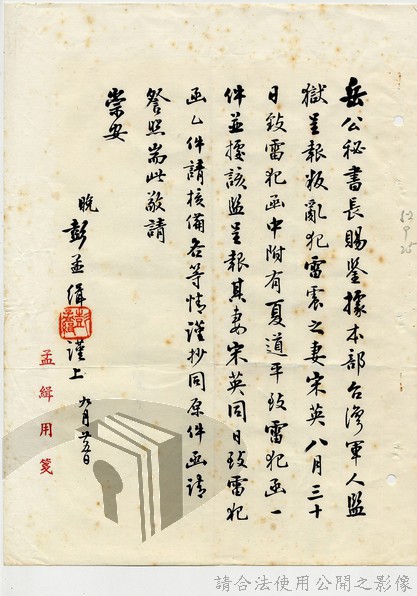 岳公秘書長賜鑒據本部台灣軍人監
獄呈報叛亂犯雷震之妻宋英八月三十
日致雷犯函中附有夏道平致雷犯函一
件並據該監呈報其妻宋英同日致雷犯
函乙件請核備各等情謹抄同原件函請
詧照耑此敬請
崇安
晚彭孟緝謹上九月廿五日
孟緝用箋
請合法使用公開之影像